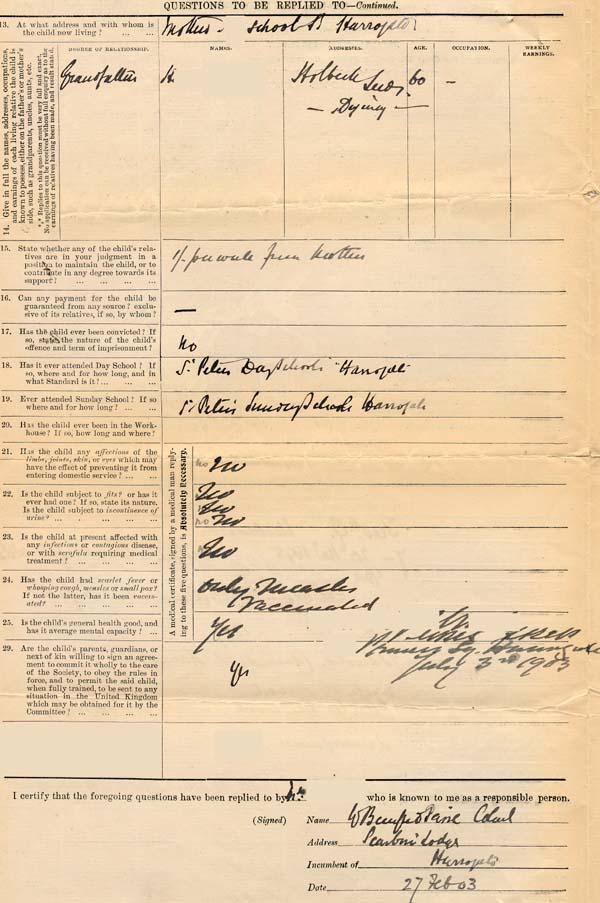 QUESTIONS TO BE REPLIED TO—Continued.
13. At what address and with whom is
the child now living? ... ...
Mother - School B Harrogate
14. Give in full the names, addresses, occupations,
and earnings of each living relative the child is
known to possess, either on the father's or mother's
side, such as grandparents, uncles, aunts, etc.
*** Replies to this question must be very full and exact.
No application can be received without full enquiry as to the
earnings of relatives having been made, and result stated.
DEGREE OF RELATIONSHIP. NAMES. ADDRESSES. AGE. OCCUPATION. WEEKLY
EARNINGS.
Grandfather H Holbeck 60 —
Leeds
— Dying —
15. State whether any of the child's rela-
tives are in your judgment in a
position to maintain the child, or to
contribute in any degree towards its
support? ... ... ...
1/- per week from Mother
16. Can any payment for the child be
guaranteed from any source? exclu-
sive of its relatives, if so, by whom?
—
17. Has the child ever been convicted? If
so, state the nature of the child's
offence and term of imprisonment?
No
18. Has it ever attended Day School? If
so, where and for how long, and in
what Standard is it? ... ... ...
St Peters Day Schools Harrogate
19. Ever attended Sunday School? If so
where and for how long? ... ...
St Peter's Sunday Schools Harrogate
20. Has the child ever been in the Work-
house? If so, how long and where?
A medical certificate, signed by a medical man reply-
ing to these five questions, is Absolutely Necessary.
21. Has the child any affections of the
limbs, joints, skin, or eyes which may
have the effect of preventing it from
entering domestic service? ... ...
no No
22. Is the child subject to fits? or has it
ever had one? If so, state its nature.
Is the child subject to incontinence of
urine? ... ... ... ...
No
No
no No
23. Is the child at present affected with
any infectious or contagious disease,
or with scrofula requiring medical
treatment? ... ... ... ...
No
24. Has the child had scarlet fever or
whooping cough, measles or small pox?
If not the latter, has it been vaccin-
ated? ... ... ... ...
Only Measles
Vaccinated
25. Is the child's general health good, and
has it average mental capacity? ...
Yes
July 3rd 1903
29. Are the child's parents, guardians, or
next of kin willing to sign an agree-
ment to commit it wholly to the care
of the Society, to obey the rules in
force, and to permit the said child,
when fully trained, to be sent to any
situation in the United Kingdom
which may be obtained for it by the
Committee? ... ... ... ...
Yes
I certify that the foregoing questions have been replied to by who is known to me as a responsible person.
(Signed) Name
Address Lodge
Incumbent of Harrogate
Date 27 Feb 03